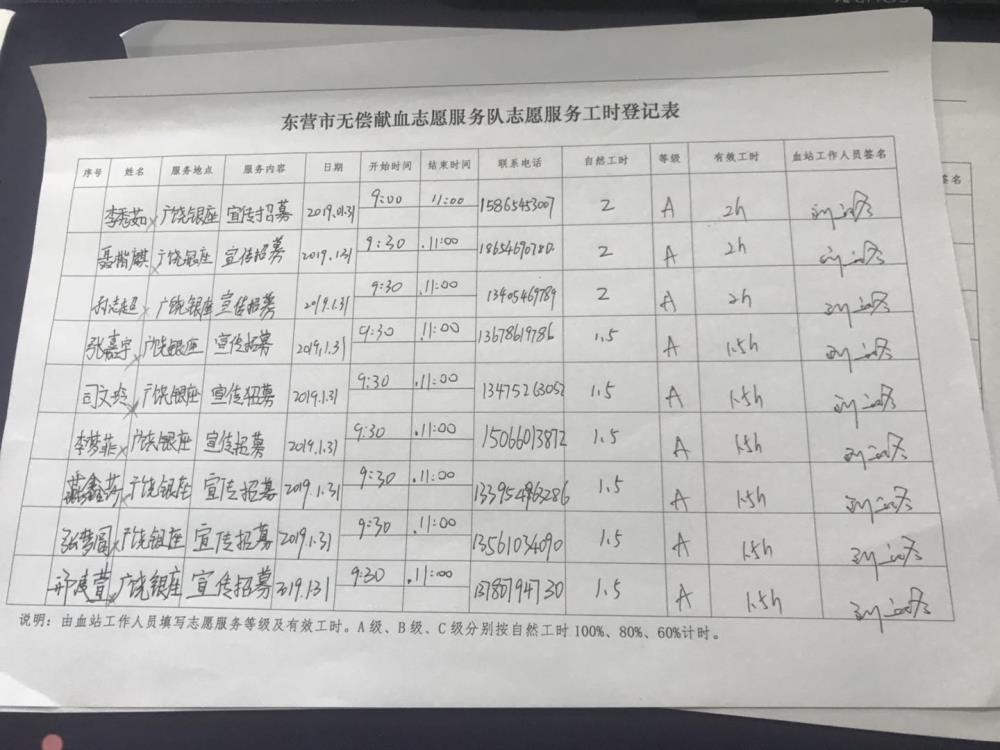 东营市无偿献血志愿服务队志愿服务工时登记表
序号 姓名 服务地点 服务内容 日期 开始时间 结束时间 联系电话 自然工时 等级 有效工时 血站工作人员签名
李秀茹 广饶银座 宣传招募 2019.01.31 9:00 11:00 15865453007 2 A 2h
广饶银座 宣传招募 2019.1.31 9:30 11:00 2 A 2h
广饶银座 宣传招募 2019.1.31 9:30 11:00 13405469789 2 A 2h
张嘉宇 广饶银座 宣传招募 2019.1.31 9:30 11:00 13678619786 1.5 A 1.5h
司文玲 广饶银座 宣传招募 2019.1.31 9:30 11:00 13475263052 1.5 A 1.5h
李梦菲 广饶银座 宣传招募 2019.1.31 9:30 11:00 15066013872 1.5 A 1.5h
广饶银座 宣传招募 2019.1.31 9:30 11:00 13395496286 1.5 A 1.5h
广饶银座 宣传招募 2019.1.31 9:30 11:00 13561034090 1.5 A 1.5h
广饶银座 宣传招募 2019.1.31 9:30 11:00 1.5 A 1.5h
说明：由血站工作人员填写志愿服务等级及有效工时。A级、B级、C级分别按自然工时100%、80%、60%计时。
签名